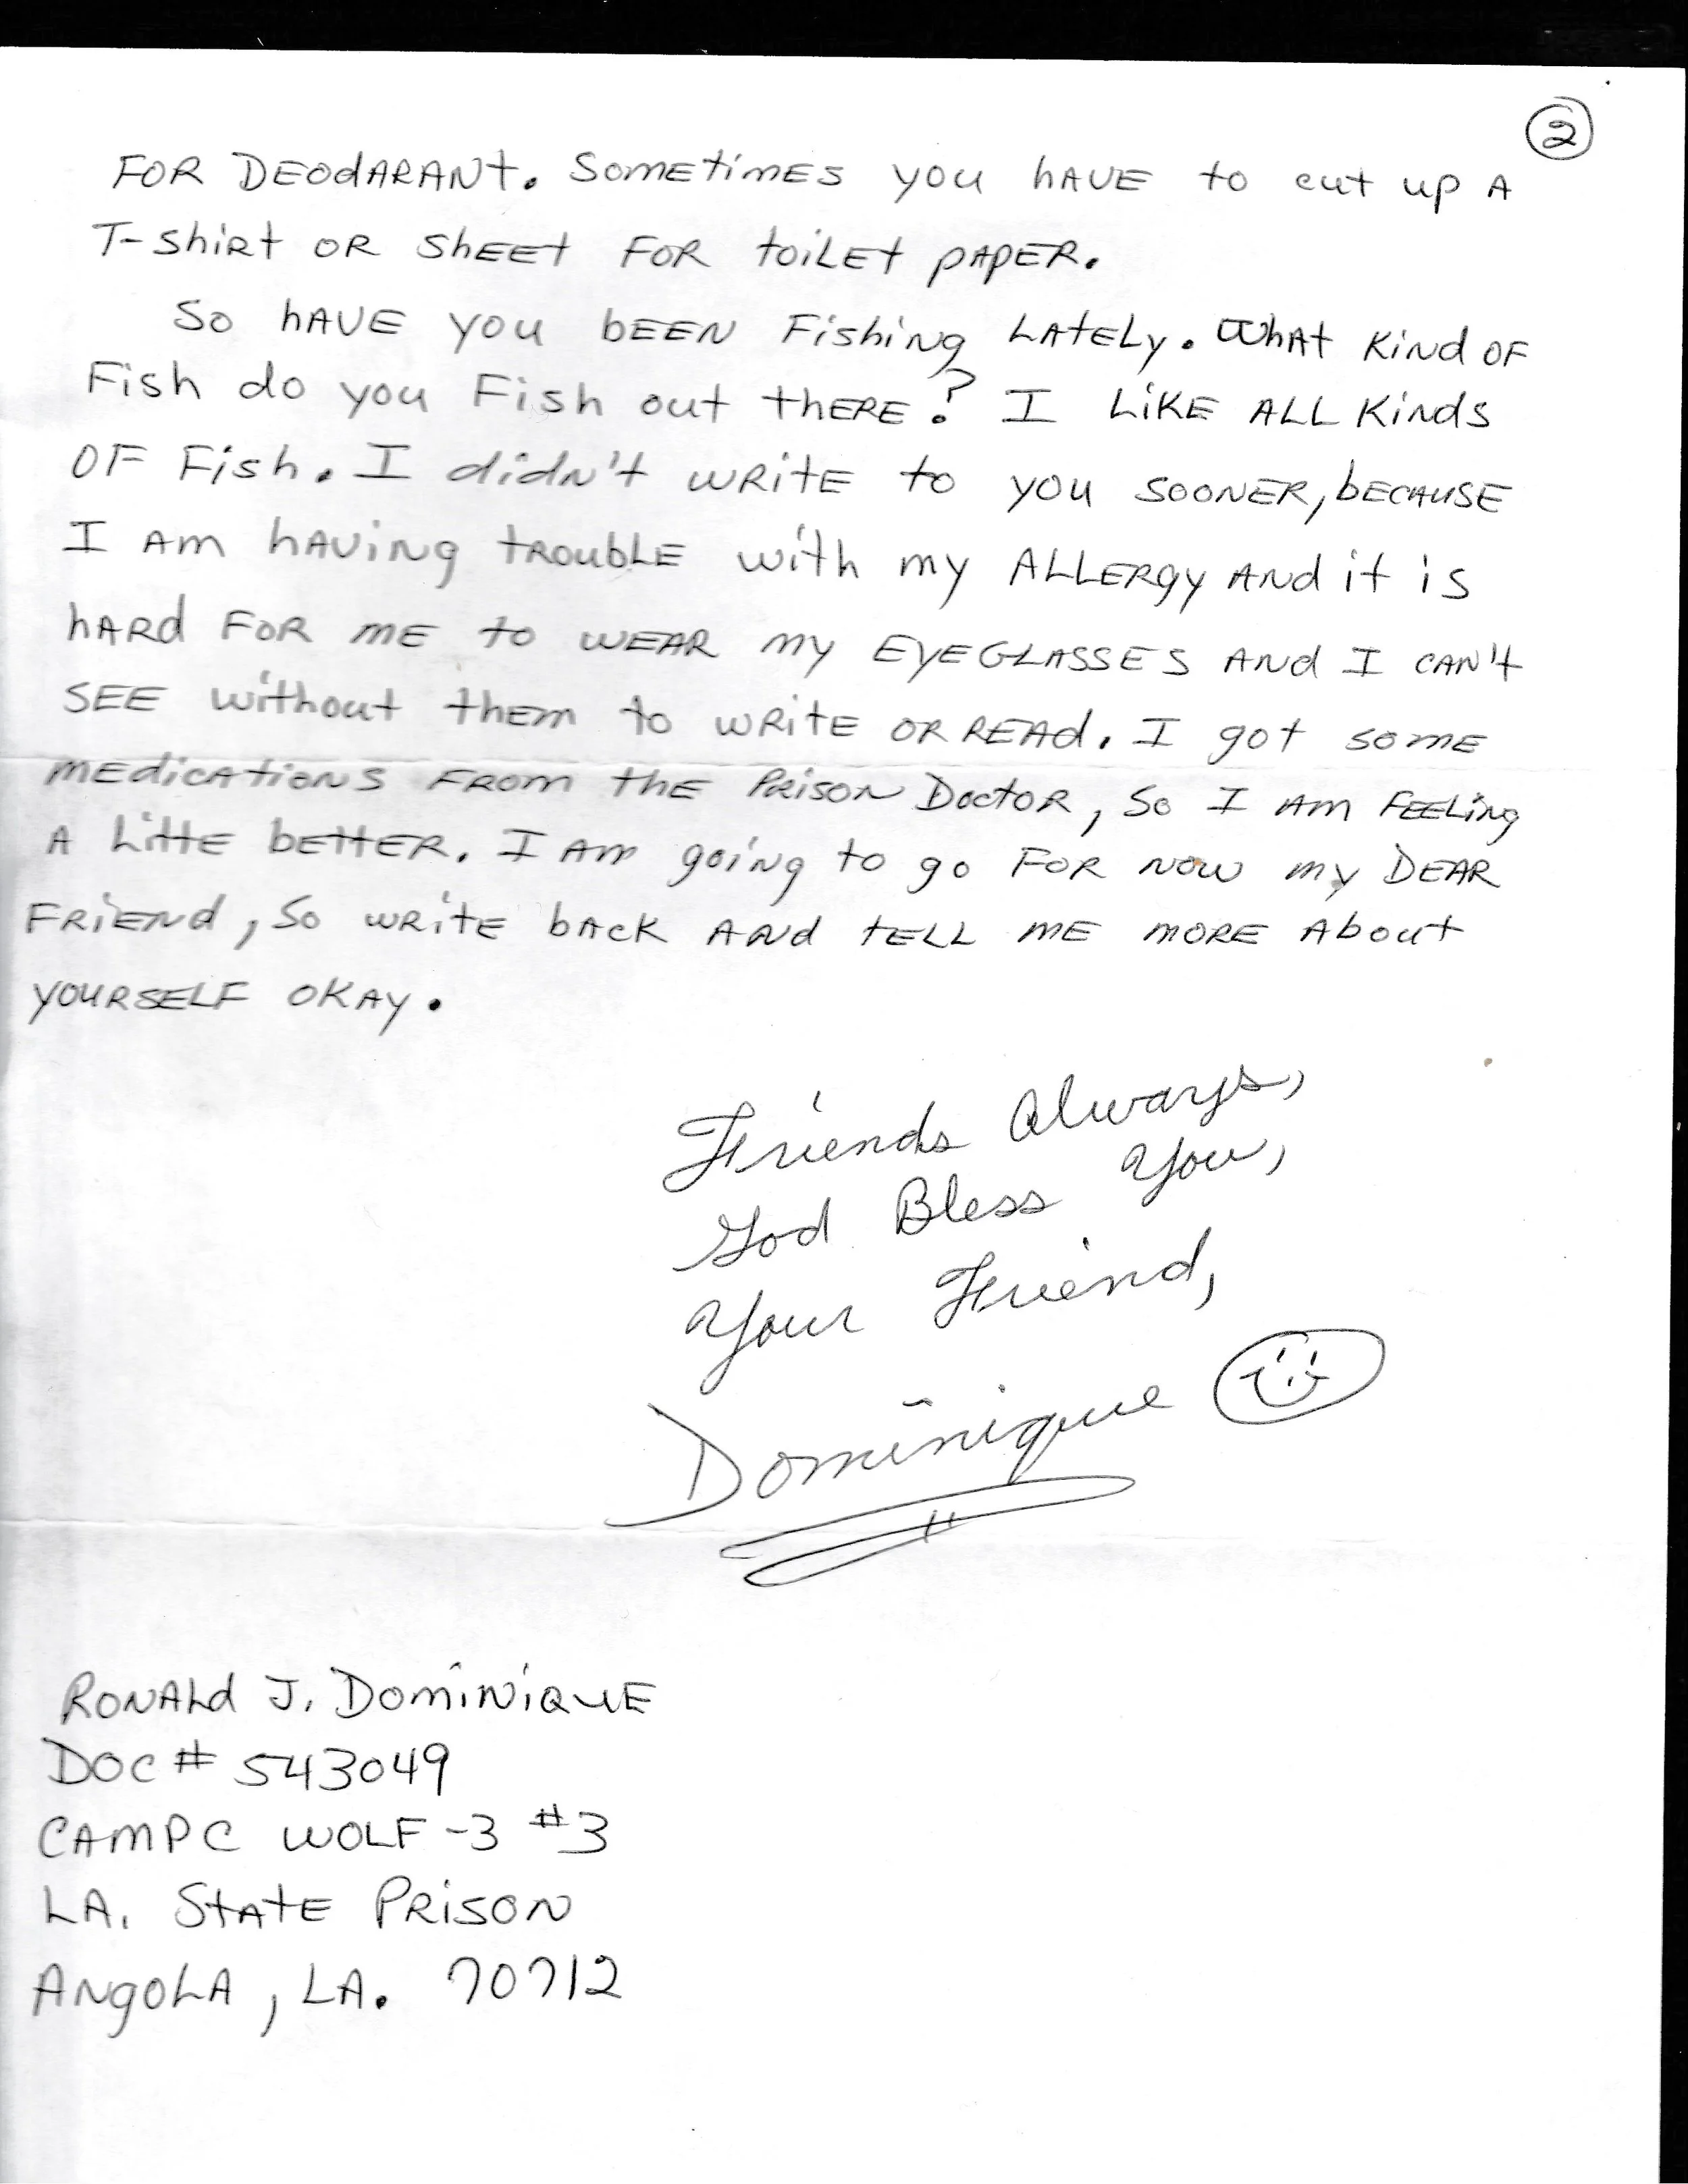 2
FOR DEODARANT. SOMETIMES YOU HAVE to cut up A
T-Shirt OR SHEET FOR toiLEt PAPER.
So HAVE YOU bEEN Fishing LAtELy. What Kind OF
Fish do you Fish out thERE? I LiKE ALL Kinds
OF Fish. I didn't WRitE to you SOONER, bECAUSE
I Am hAVing tRoubLE with my ALLERgy ANd it is
hARd FOR mE to WEAR my EYEGLASSES ANd I CAN't
SEE without thEm to WRitE OR READ. I got somE
mEdicAtioNS FRom thE PRISON DoctoR, So I Am FEELiNg
A LittE bEttER. I Am going to go FOR NOW my DEAR
FRiENd, So WRitE bAck ANd tELL mE moRE About
youRSELF OKAy.
Friends Always,
God Bless You,
Your Friend,
Dominique
RONALd J. DomiNiQuE
DOC # 543049
CAmp C WOLF-3 #3
LA. StAtE PRiSON
ANgoLA, LA. 70712